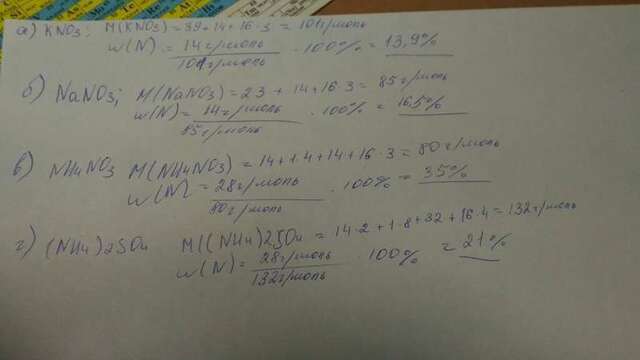 а) KNO3: M(KNO3)=39+14+16·3=101г/моль
w(N)=14г/моль/101г/моль·100%=13,9%
б) NaNO3; M(NaNO3)=23+14+16·3=85г/моль
w(N)=14г/моль/85г/моль·100%=16,5%
в) NH4NO3 M(NH4NO3)=14+1·4+14+16·3=80г/моль
w(N)=28г/моль/80г/моль·100%=35%
г) (NH4)2SO4 M((NH4)2SO4=14·2+1·8+32+16·4=132г/моль
w(N)=28г/моль/132г/моль·100%=21%